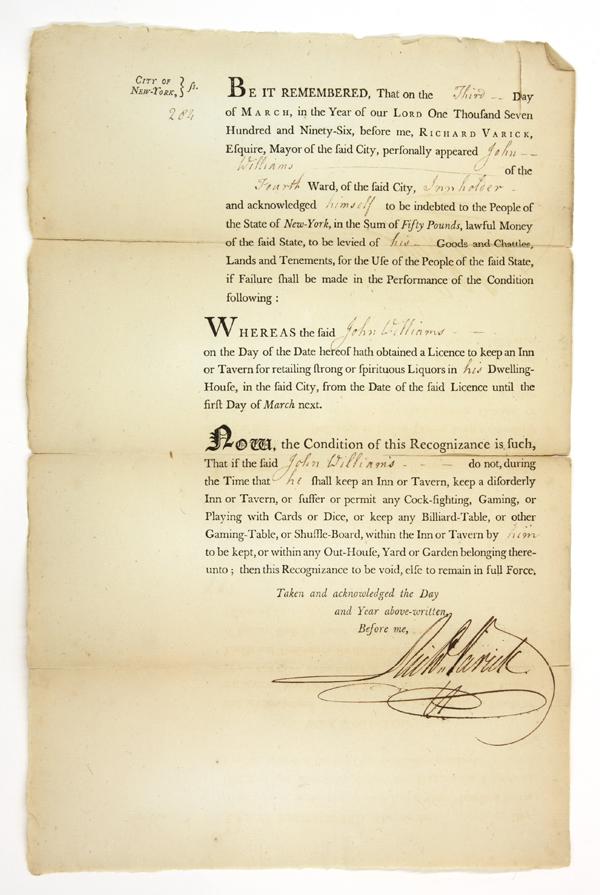 CITY OF
NEW-YORK, } ſſ.
284
BE IT REMEMBERED, That on the Third -- Day
of MARCH, in the Year of our LORD One Thouſand Seven
Hundred and Ninety-Six, before me, RICHARD VARICK,
Eſquire, Mayor of the ſaid City, perſonally appeared John --
Williams of the
Fourth Ward, of the ſaid City, Innholder -
and acknowledged himself to be indebted to the People of
the State of New-York, in the Sum of Fifty Pounds, lawful Money
of the ſaid State, to be levied of his - Goods and Chattles,
Lands and Tenements, for the Uſe of the People of the ſaid State,
if Failure ſhall be made in the Performance of the Condition
following :
WHEREAS the ſaid John Williams - -
on the Day of the Date hereof hath obtained a Licence to keep an Inn
or Tavern for retailing ſtrong or ſpirituous Liquors in his Dwelling-
Houſe, in the ſaid City, from the Date of the ſaid Licence until the
firſt Day of March next.
Now, the Condition of this Recognizance is ſuch,
That if the ſaid John Williams - - - do not, during
the Time that he ſhall keep an Inn or Tavern, keep a diſorderly
Inn or Tavern, or ſuffer or permit any Cock-fighting, Gaming, or
Playing with Cards or Dice, or keep any Billiard-Table, or other
Gaming-Table, or Shuffle-Board, within the Inn or Tavern by him
to be kept, or within any Out-Houſe, Yard or Garden belonging there-
unto ; then this Recognizance to be void, elſe to remain in full Force.
Taken and acknowledged the Day
and Year above-written,
Before me,
Richd. Varick